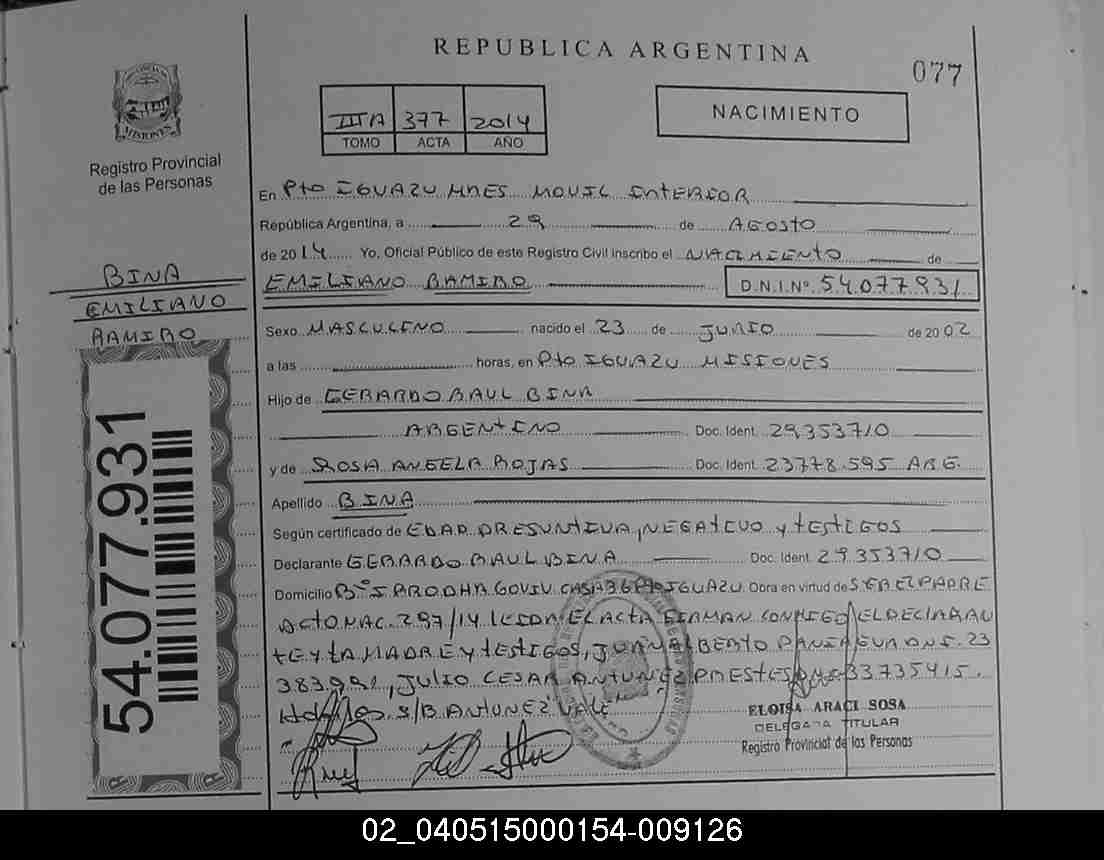 REPUBLICA ARGENTINA
077
IIIA 377 2014
TOMO ACTA AÑO
NACIMIENTO
MISIONES
Registro Provincial
de las Personas
En Pto IGUAZU MNES MOVIL INTERIOR
República Argentina, a 29 de AGOSTO
de 2014 Yo, Oficial Público de este Registro Civil inscribo el NACIMIENTO de
BINA
EMILIANO
RAMIRO
EMILIANO RAMIRO D.N.I.Nº 54.077.931
Sexo MASCULINO nacido el 23 de JUNIO de 2002
a las horas, en Pto IGUAZU MISIONES
Hijo de GERARDO RAUL BINA
ARGENTINO Doc. Ident. 29353710
y de ROSA ANGELA ROJAS Doc. Ident. 23778.595 ARG.
Apellido BINA
Según certificado de EDAD PRESUNTIVA, NEGATIVO y TESTIGOS
Declarante GERARDO RAUL BINA Doc. Ident. 29353710
Domicilio Bº I PRODHA CASA 36 Pto IGUAZU Obra en virtud de SER EL PADRE
ACTO NAC. 297/14 LEIDA EL ACTA FIRMAN CONMIGO EL DECLARAN
TE Y LA MADRE Y TESTIGOS, JUAN ALBERTO DNI. 23
383991, JULIO CESAR ANTUNEZ PRESTES 33735415.
S/B ANTUNEZ VALE
54.077.931
ELOISA ARACI SOSA
DELEGADA TITULAR
Registro Provincial de las Personas
02_040515000154-009126